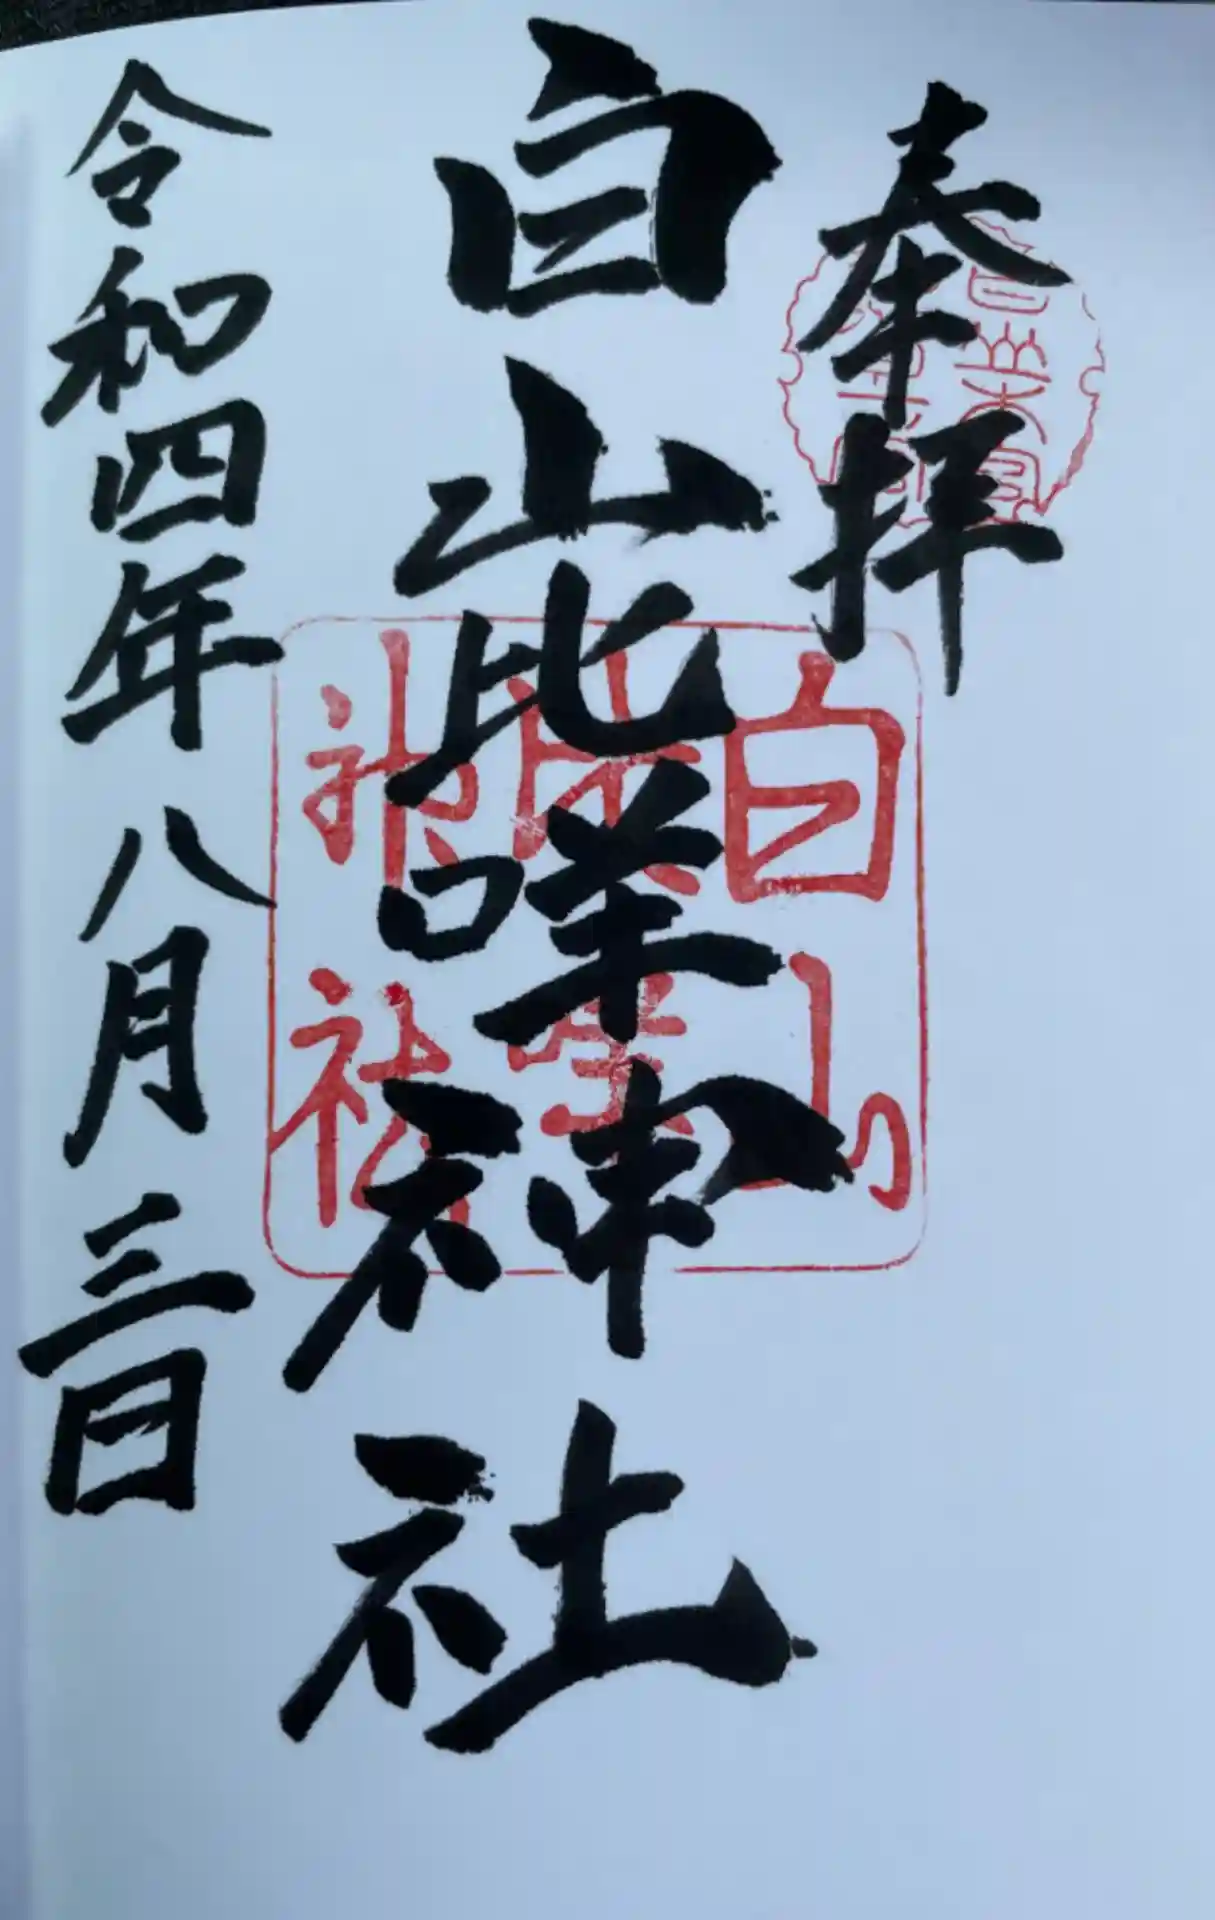 奉拝
白山比咩神社
令和四年八月三日
白山比咩神社